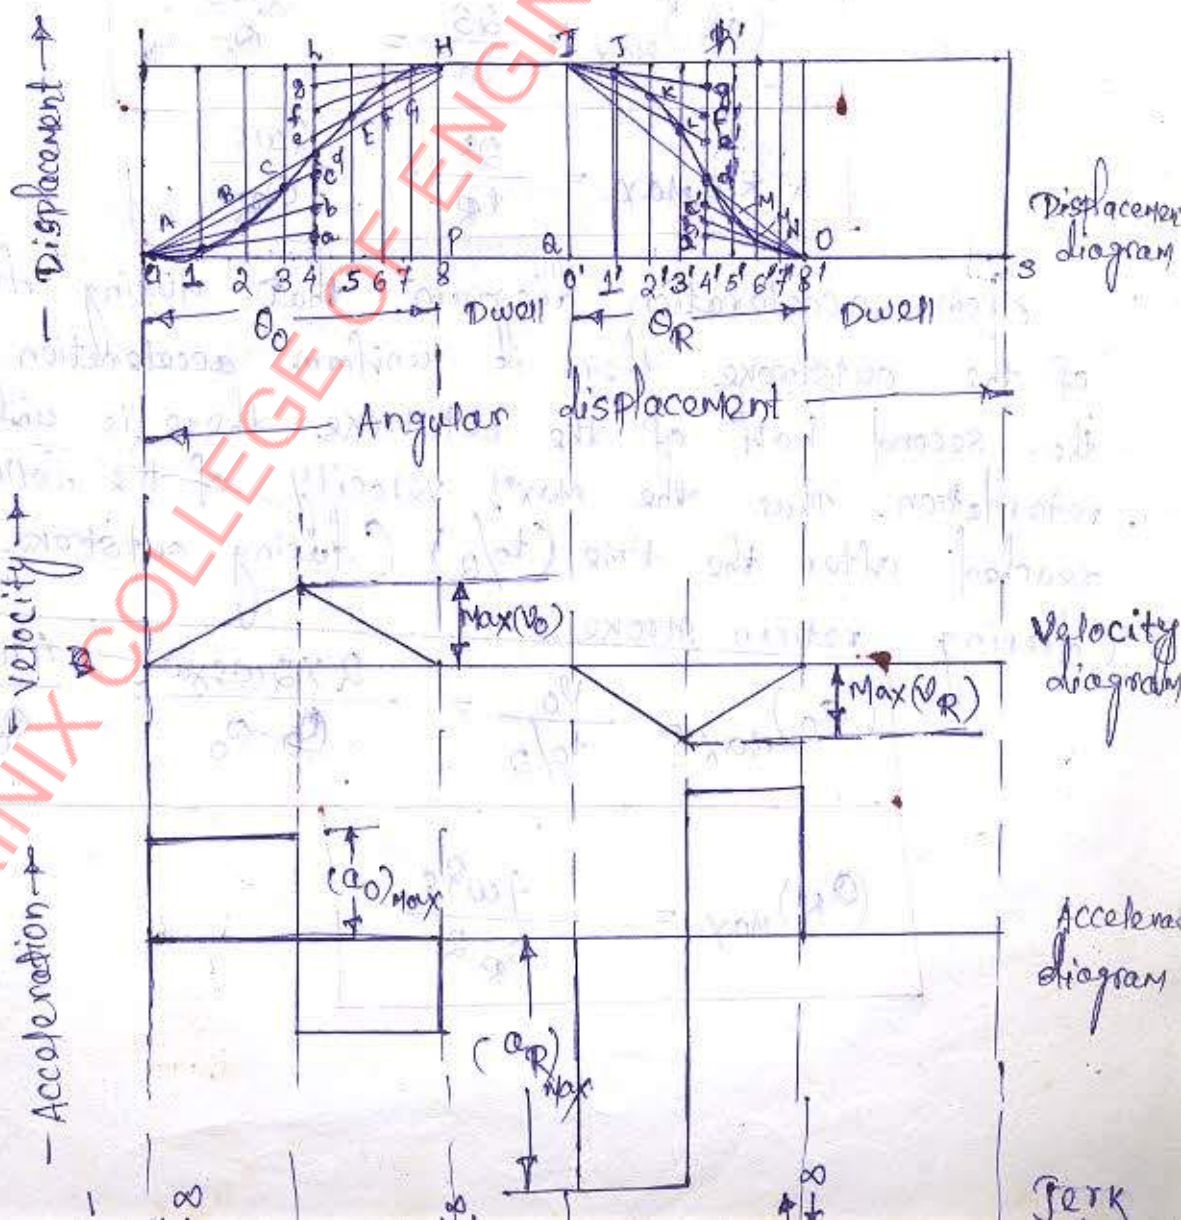 Displacement
L H I J h'
g
f
e
d
c
b
a
A B C E F G
K
M N O
P Q
0 1 2 3 4 5 6 7 8
0' 1' 2' 3' 4' 5' 6' 7' 8'
S
Displacement
diagram
θO Dwell θR Dwell
Angular displacement
Velocity
Max(VO)
Max(VR)
Velocity
diagram
Acceleration
(aO)Max
(aR)Max
Accelera
diagram
∞ ∞ ∞
Jerk
NIX COLLEGE OF ENGIN